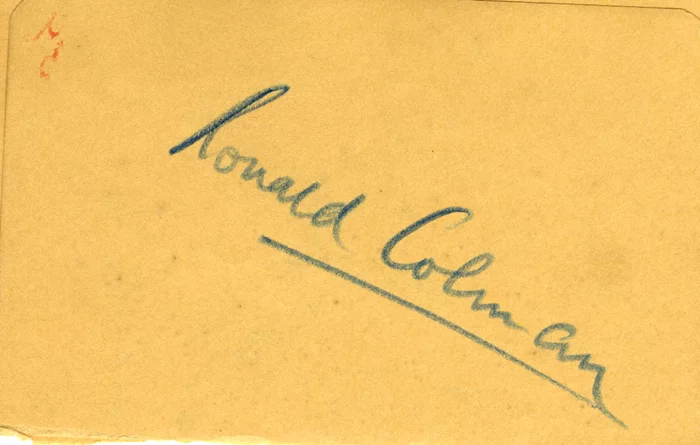 Ronald Colman